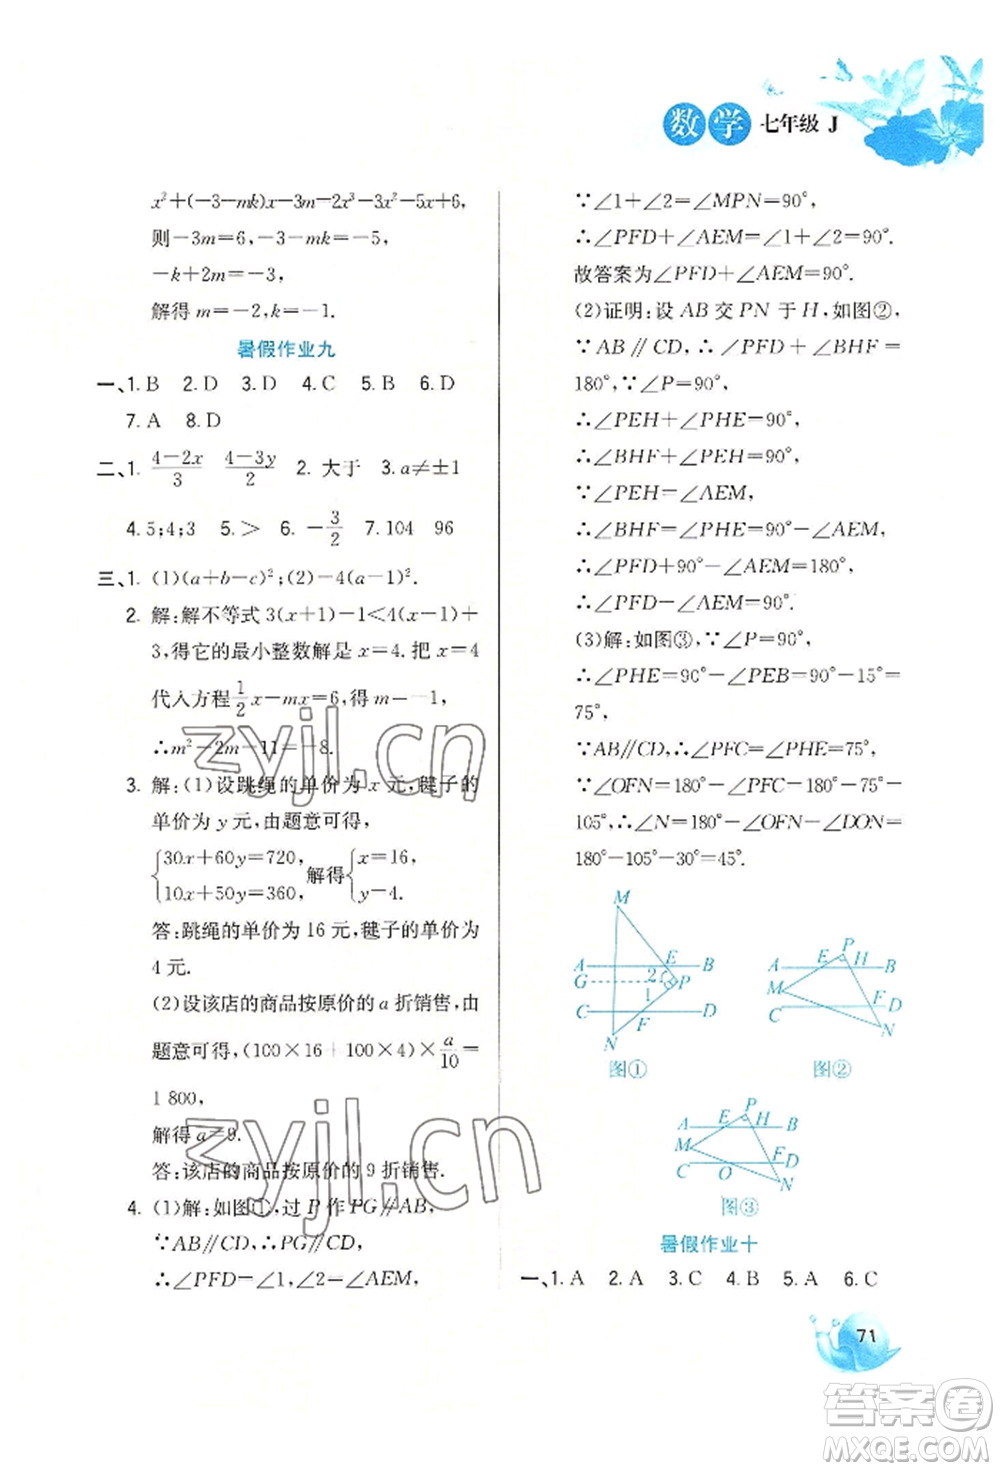 数学 七年级 J
x²+(-3-mk)x-3m-2x³-3x²-5x+6,
则-3m=6,-3-mk=-5,
-k+2m=-3,
解得 m=-2,k=-1.
暑假作业九
一、1. B 2. D 3. D 4. C 5. B 6. D
7. A 8. D
二、1. (4-2x)/3 (4-3y)/2 2. 大于 3. a≠±1
4. 5;4;3 5. > 6. -3/2 7. 104 96
三、1. (1)(a+b-c)²;(2)-4(a-1)².
2. 解:解不等式 3(x+1)-1<4(x-1)+
3,得它的最小整数解是 x=4. 把 x=4
代入方程 1/2 x-mx=6,得 m=-1,
∴m²-2m-11=-8.
3. 解:(1)设跳绳的单价为 x 元,毽子的
单价为 y 元,由题意可得,
{30x+60y=720, 解得 {x=16,
10x+50y=360, y-4.
答:跳绳的单价为 16 元,毽子的单价为
4 元.
(2)设该店的商品按原价的 a 折销售,由
题意可得,(100×16+100×4)×a/10=
1 800,
解得 a=9.
答:该店的商品按原价的 9 折销售.
4. (1)解:如图①,过 P 作 PG∥AB,
∵AB∥CD,∴PG∥CD,
∴∠PFD=∠1,∠2=∠AEM,
∵∠1+∠2=∠MPN=90°,
∴∠PFD+∠AEM=∠1+∠2=90°.
故答案为∠PFD+∠AEM=90°.
(2)证明:设 AB 交 PN 于 H,如图②,
∵AB∥CD,∴∠PFD+∠BHF=
180°,∵∠P=90°,
∴∠PEH+∠PHE=90°,
∴∠BHF+∠PEH=90°,
∵∠PEH=∠AEM,
∴∠BHF=∠PHE=90°-∠AEM,
∴∠PFD+90°-∠AEM=180°,
∴∠PFD-∠AEM=90°.
(3)解:如图③,∵∠P=90°,
∴∠PHE=90°-∠PEB=90°-15°=
75°,
∵AB∥CD,∴∠PFC=∠PHE=75°,
∵∠OFN=180°-∠PFC-180°-75°-
105°,∴∠N=180°-∠OFN-∠DON=
180°-105°-30°=45°.
M
A E B
G 2 P
1
C F D
N
图①
P
A E H B
M
C F D
N
图②
P
A E H B
M
C O F D
N
图③
暑假作业十
一、1. A 2. A 3. C 4. B 5. A 6. C
71
zyjl.cn
zyjl.cn
答案圈
MXQE.COM